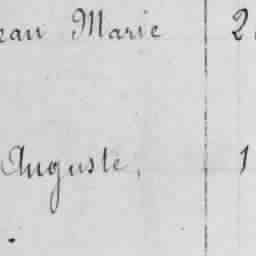 ean Marie 2
Auguste, 1